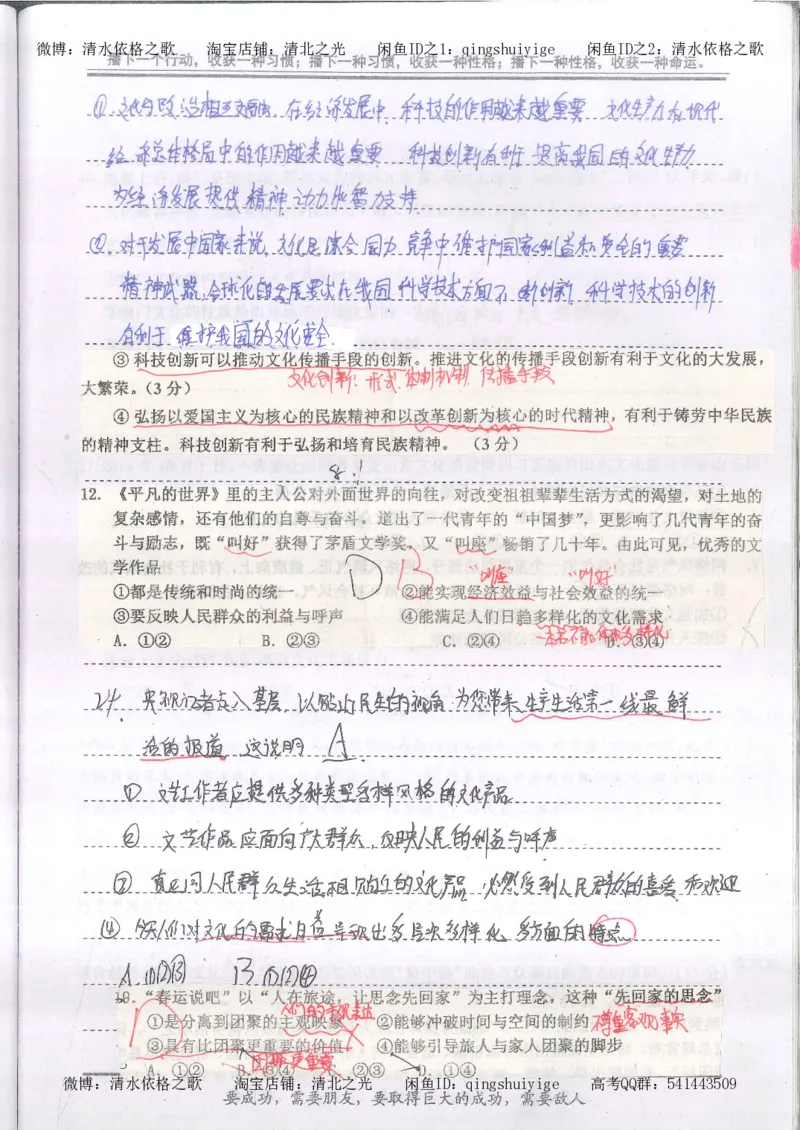 微博：清水依格之歌 淘宝店铺：清北之光 闲鱼ID之1：qingshuiyige 闲鱼ID之2：清水依格之歌
播下一个行动，收获一种习惯；播下一种习惯，收获一种性格；播下一种性格，收获一种命运。
①文化与政治相互交融，在经济发展中，科技的作用越来越重要 文化生产力在现代
经济总体格局中的作用越来越重要 科技创新有利于提高我国的文化生产力
为经济发展提供精神动力和智力支持
②对于发展中国家来说，文化是综合国力竞争中维护国家利益和安全的重要
精神武器，全球化的发展要求在我国科学技术方面不断创新 科学技术的创新
有利于维护我国的文化安全
③科技创新可以推动文化传播手段的创新。推进文化的传播手段创新有利于文化的大发展，
大繁荣。（3分） 文化创新：形式、体制机制、传播手段
④弘扬以爱国主义为核心的民族精神和以改革创新为核心的时代精神，有利于铸劳中华民族
的精神支柱。科技创新有利于弘扬和培育民族精神。 （3分）
12．《平凡的世界》里的主人公对外面世界的向往，对改变祖祖辈辈生活方式的渴望，对土地的
复杂感情，还有他们的自尊与奋斗，道出了一代青年的“中国梦”，更影响了几代青年的奋
斗与励志，既“叫好”获得了茅盾文学奖，又“叫座”畅销了几十年。由此可见，优秀的文
学作品 D B “叫座” “叫好”
①都是传统和时尚的统一 ②能实现经济效益与社会效益的统一
③要反映人民群众的利益与呼声 ④能满足人们日趋多样化的文化需求
A．①② B．②③ C．②④ D．③④
24. 央视记者走入基层，以贴近民生的视角 为您带来生产生活第一线最鲜
活的报道 这说明 A
① 文艺工作者应提供多种类型各样风格的文化产品
② 文艺作品应面向广大群众，反映人民的利益与呼声
③ 真正同人民群众生活相贴近的文化产品 必然受到人民群众的喜爱和欢迎
④ 人们对文化的需求日益呈现出多层次多样化 多方面的特点
A ①②③ B ①②④
18．“春运说吧”以“人在旅途，让思念先回家”为主打理念，这种“先回家的思念”
①是分离到团聚的主观映象 ②能够冲破时间与空间的制约 尊重客观事实
③具有比团聚更重要的价值 ④能够引导旅人与家人团聚的脚步
团聚更重要
A．①② B．③④ ②③ D．①④
微博：清水依格之歌 淘宝店铺：清北之光 闲鱼ID之1：qingshuiyige 高考QQ群：541443509
要成功，需要朋友，要取得巨大的成功，需要敌人